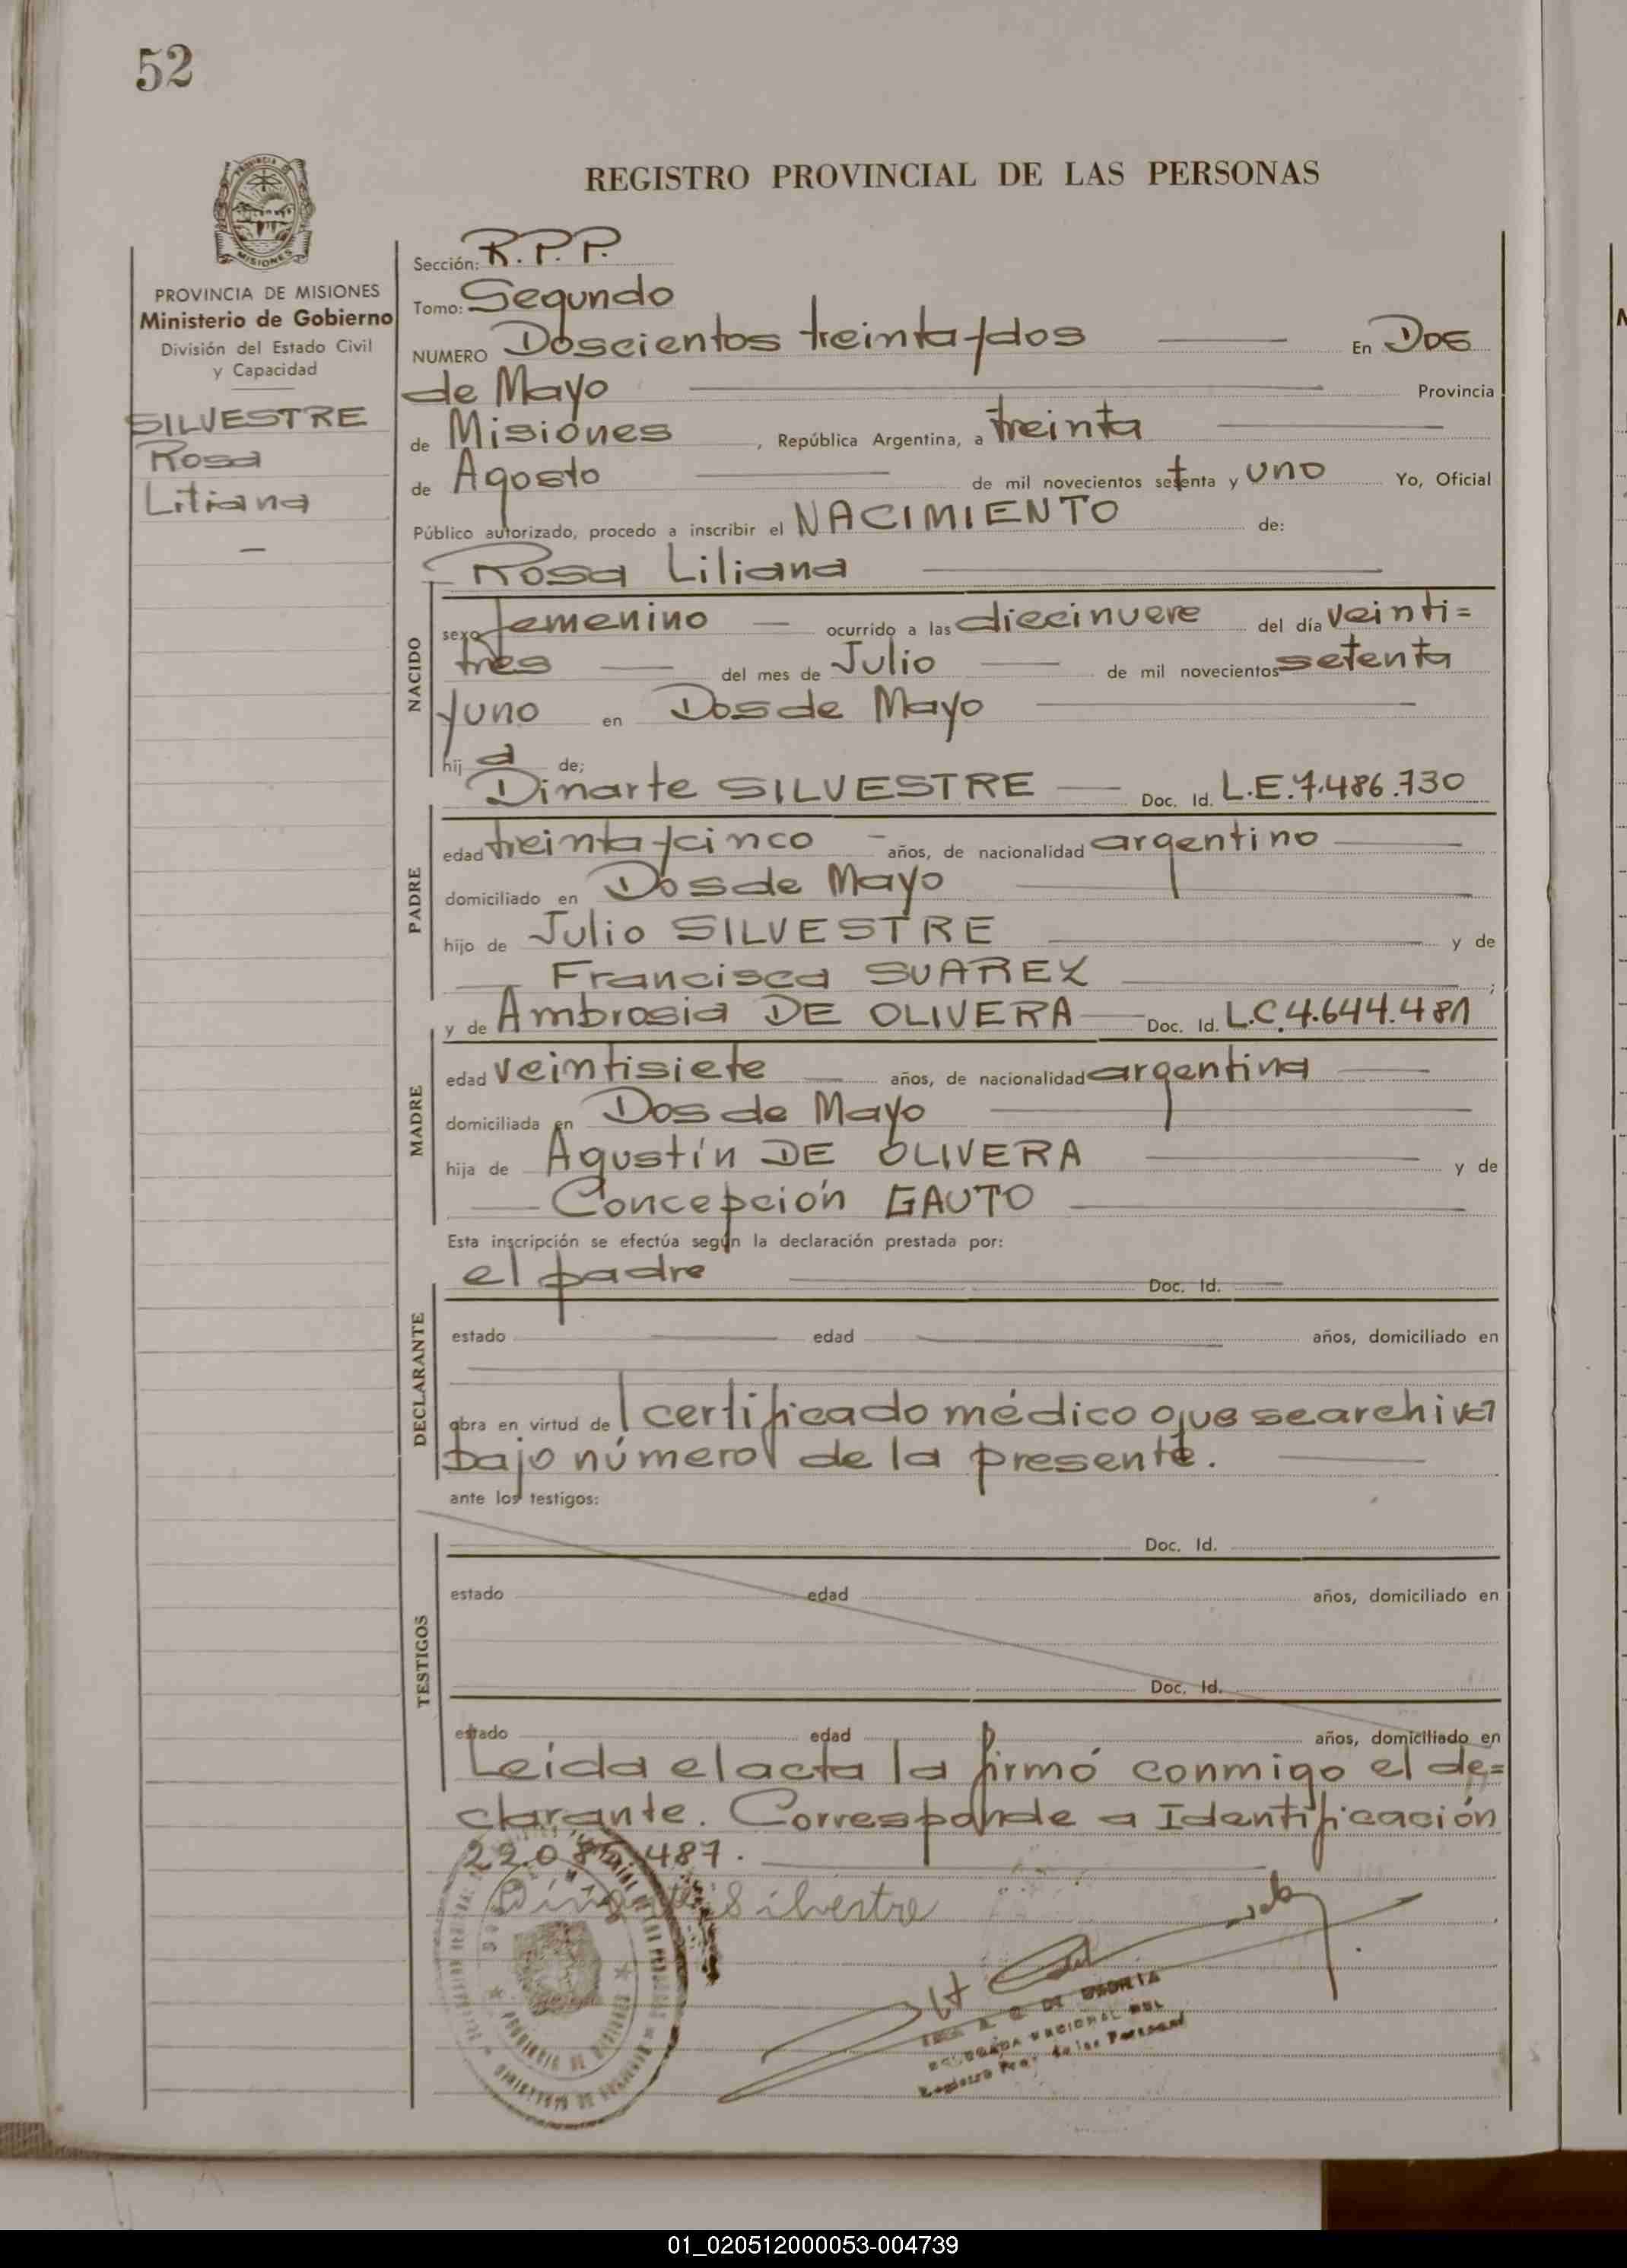 52
PROVINCIA DE MISIONES
Ministerio de Gobierno
División del Estado Civil
y Capacidad
SILVESTRE
Rosa
Liliana
REGISTRO PROVINCIAL DE LAS PERSONAS
Sección: R.P.P.
Tomo: Segundo
NUMERO Doscientos treinta y dos En Dos
de Mayo Provincia
de Misiones, República Argentina, a treinta
de Agosto de mil novecientos setenta y uno Yo, Oficial
Público autorizado, procedo a inscribir el NACIMIENTO de:
Rosa Liliana
NACIDO
sexo femenino ocurrido a las diecinueve del día veinti=
tres del mes de Julio de mil novecientos setenta
y uno en Dos de Mayo
hij a de;
Dinarte SILVESTRE Doc. Id. L.E. 7.486.730
PADRE
edad treinta y cinco años, de nacionalidad argentino
domiciliado en Dos de Mayo
hijo de Julio SILVESTRE y de
Francisca SUAREZ ;
y de Ambrosia DE OLIVERA Doc. Id. L.C. 4.644.481
MADRE
edad veintisiete años, de nacionalidad argentina
domiciliada en Dos de Mayo
hija de Agustín DE OLIVERA y de
Concepción GAUTO
Esta inscripción se efectúa según la declaración prestada por:
el padre Doc. Id.
DECLARANTE
estado edad años, domiciliado en
obra en virtud del certificado médico que se archiva
bajo número de la presente.
ante los testigos:
TESTIGOS
Doc. Id.
estado edad años, domiciliado en
Doc. Id.
estado edad años, domiciliado en
Leída el acta la firmó conmigo el de=
clarante. Corresponde a Identificación
22.0 487.
Dinarte Silvestre
01_020512000053-004739